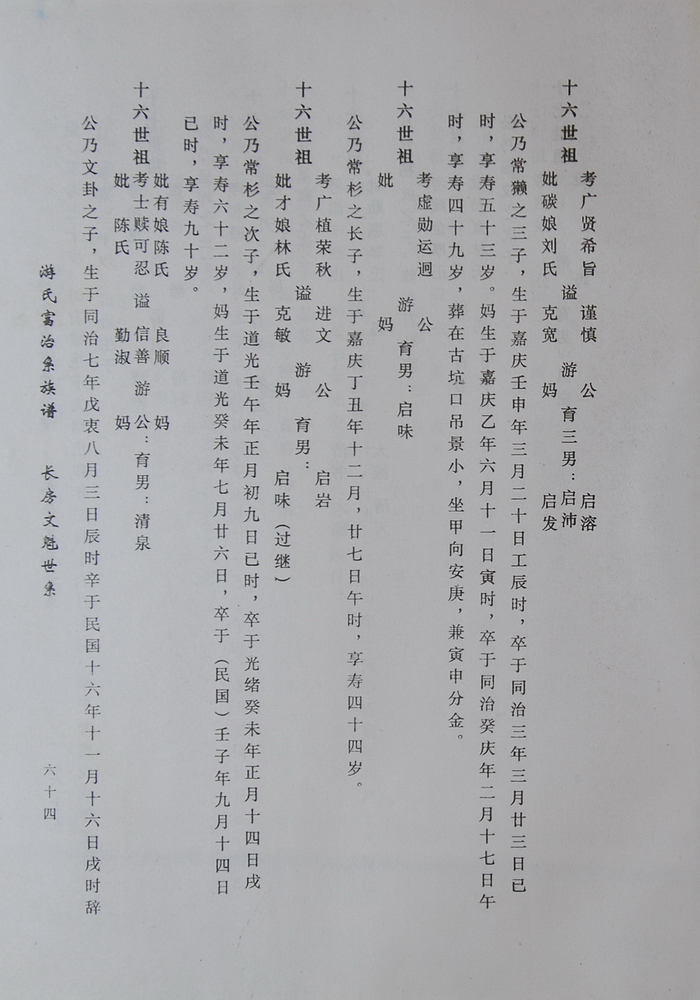 十六世祖
考广贤希旨 谨慎 公 启溶
谥 游 育三男：启沛
妣碳娘刘氏 克宽 妈 启发
公乃常獭之三子，生于嘉庆壬申年三月二十日工辰时，卒于同治三年三月廿三日已
时，享寿五十三岁。妈生于嘉庆乙年六月十一日寅时，卒于同治癸庆年二月十七日午
时，享寿四十九岁，葬在古坑口吊景小，坐甲向安庚，兼寅申分金。
十六世祖
考虚勋运迥 公
游 育男：启味
妣 妈
公乃常杉之长子，生于嘉庆丁丑年十二月，廿七日午时，享寿四十四岁。
十六世祖
考广植荣秋 进文 公 启岩
谥 游 育男：
妣才娘林氏 克敏 妈 启味（过继）
公乃常杉之次子，生于道光壬午年正月初九日已时，卒于光绪癸未年正月十四日戌
时，享寿六十二岁，妈生于道光癸未年七月廿六日，卒于（民国）壬子年九月十四日
已时，享寿九十岁。
十六世祖
妣有娘陈氏 良顺 妈
考士赎可忍 谥 信善 游 公：育男：清泉
妣 陈氏 勤淑 妈
公乃文卦之子，生于同治七年戊衷八月三日辰时辛于民国十六年十一月十六日戌时辞
游氏富治系族谱 长房文魁世系
六十四